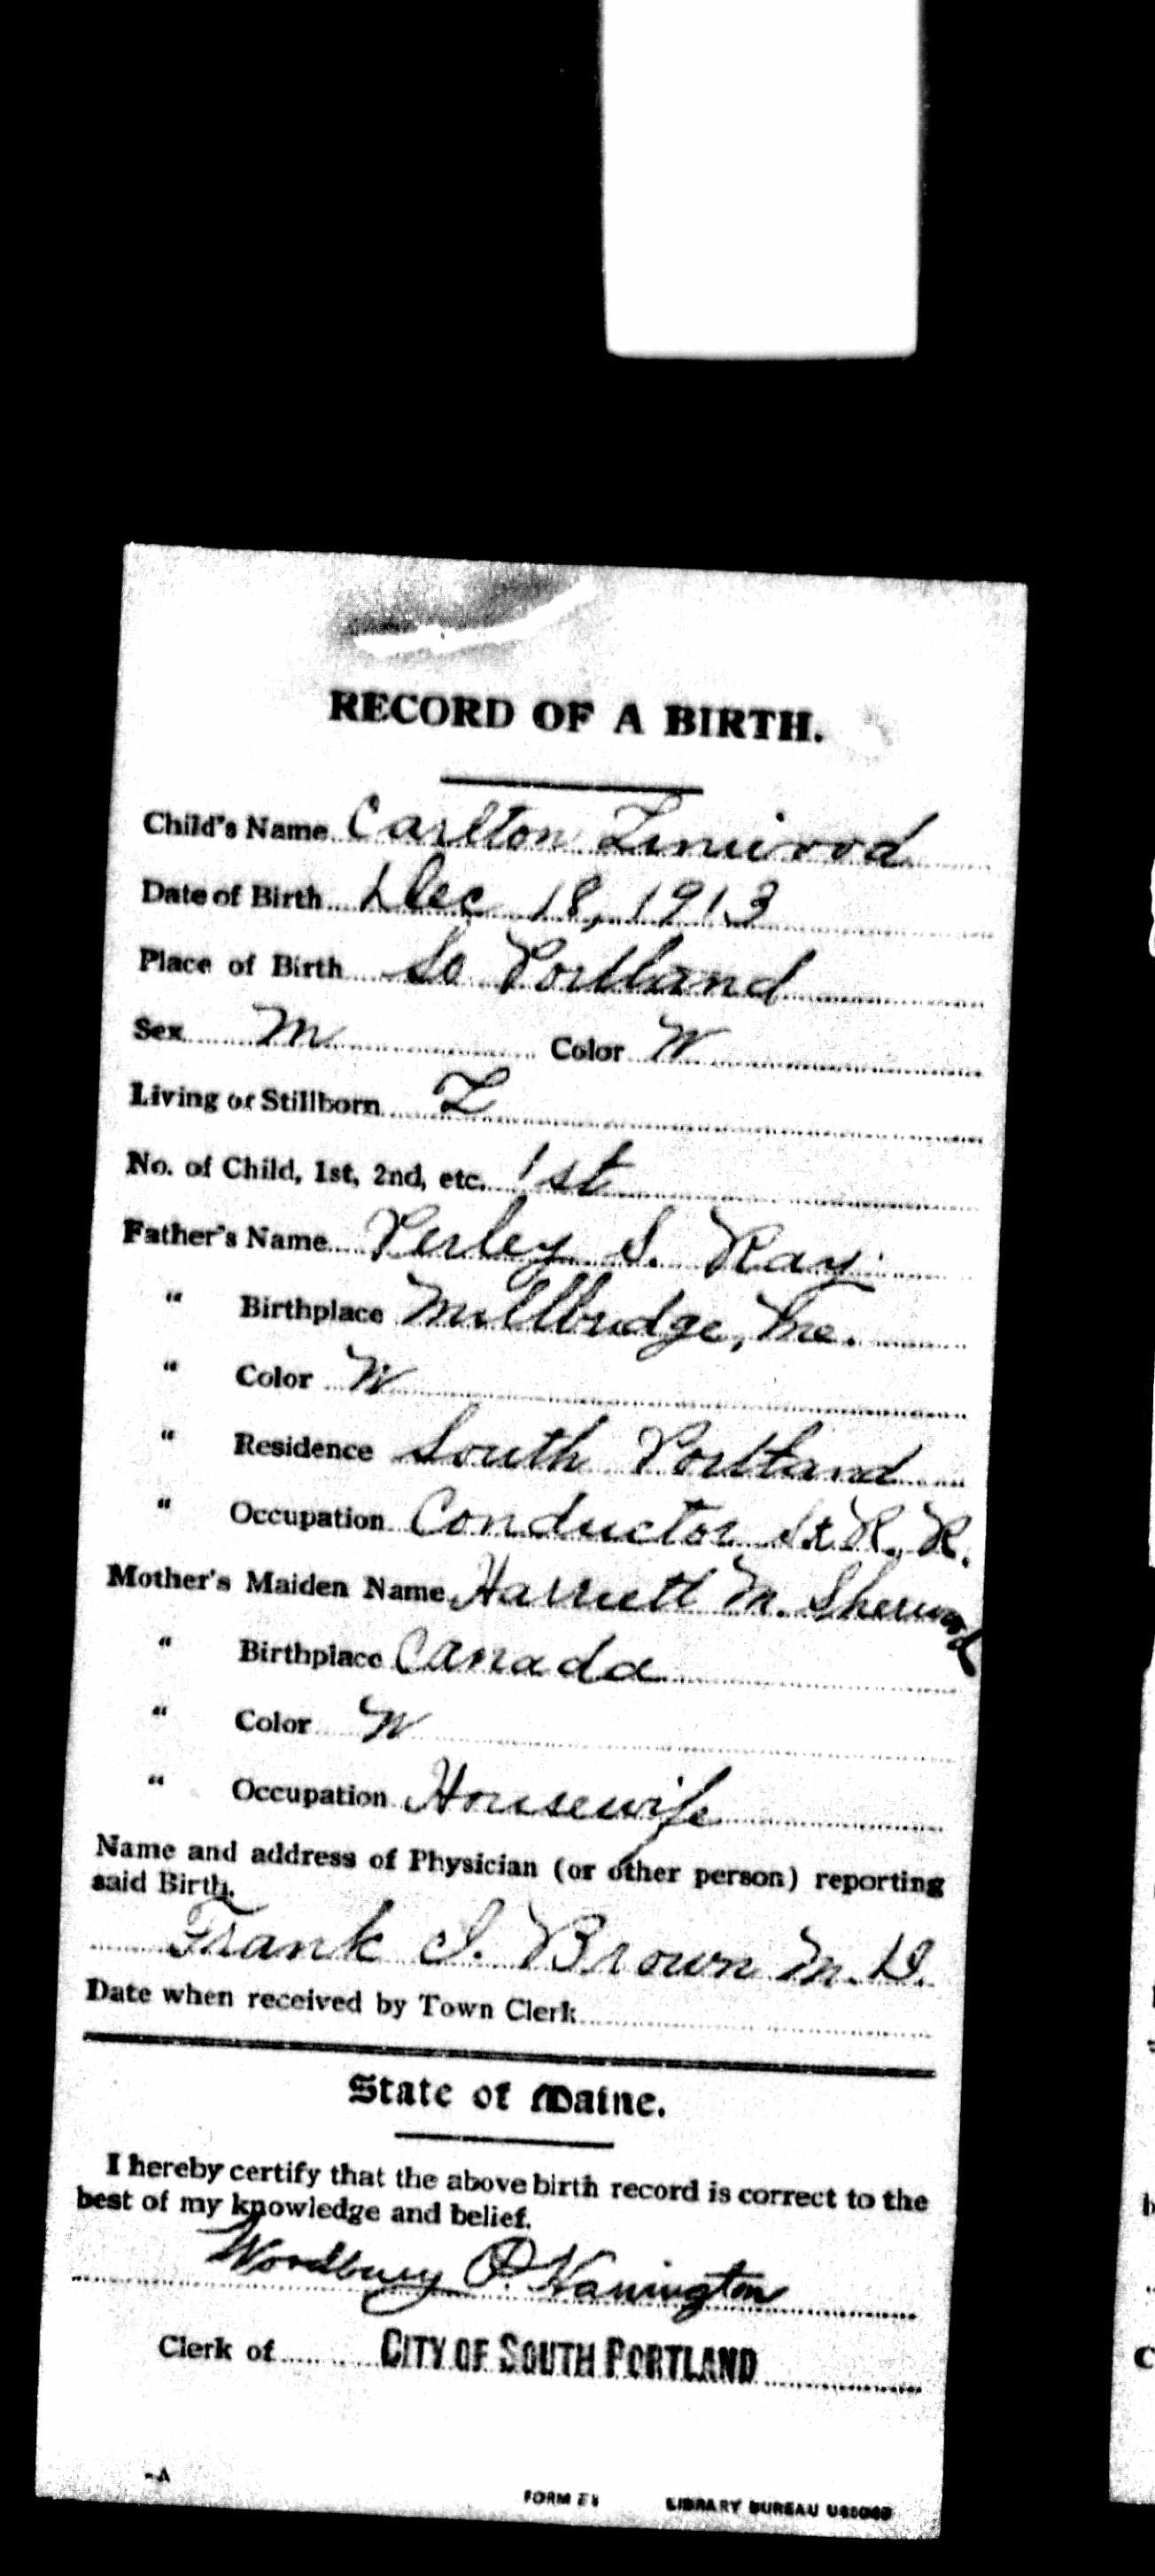 RECORD OF A BIRTH.
Child's Name Carlton Linwood
Date of Birth Dec 18, 1913
Place of Birth So Portland
Sex M Color W
Living or Stillborn L
No. of Child, 1st, 2nd, etc. 1st
Father's Name Perley S. Ray
" Birthplace Millbridge, Me.
" Color W
" Residence South Portland
" Occupation Conductor St. R. R.
Mother's Maiden Name Harriett M. Sherwood
" Birthplace Canada
" Color W
" Occupation Housewife
Name and address of Physician (or other person) reporting
said Birth.
Frank I. Brown M.D.
Date when received by Town Clerk
State of Maine.
I hereby certify that the above birth record is correct to the
best of my knowledge and belief.
Woodbury P. Harrington
Clerk of CITY OF SOUTH PORTLAND
FORM LIBRARY BUREAU